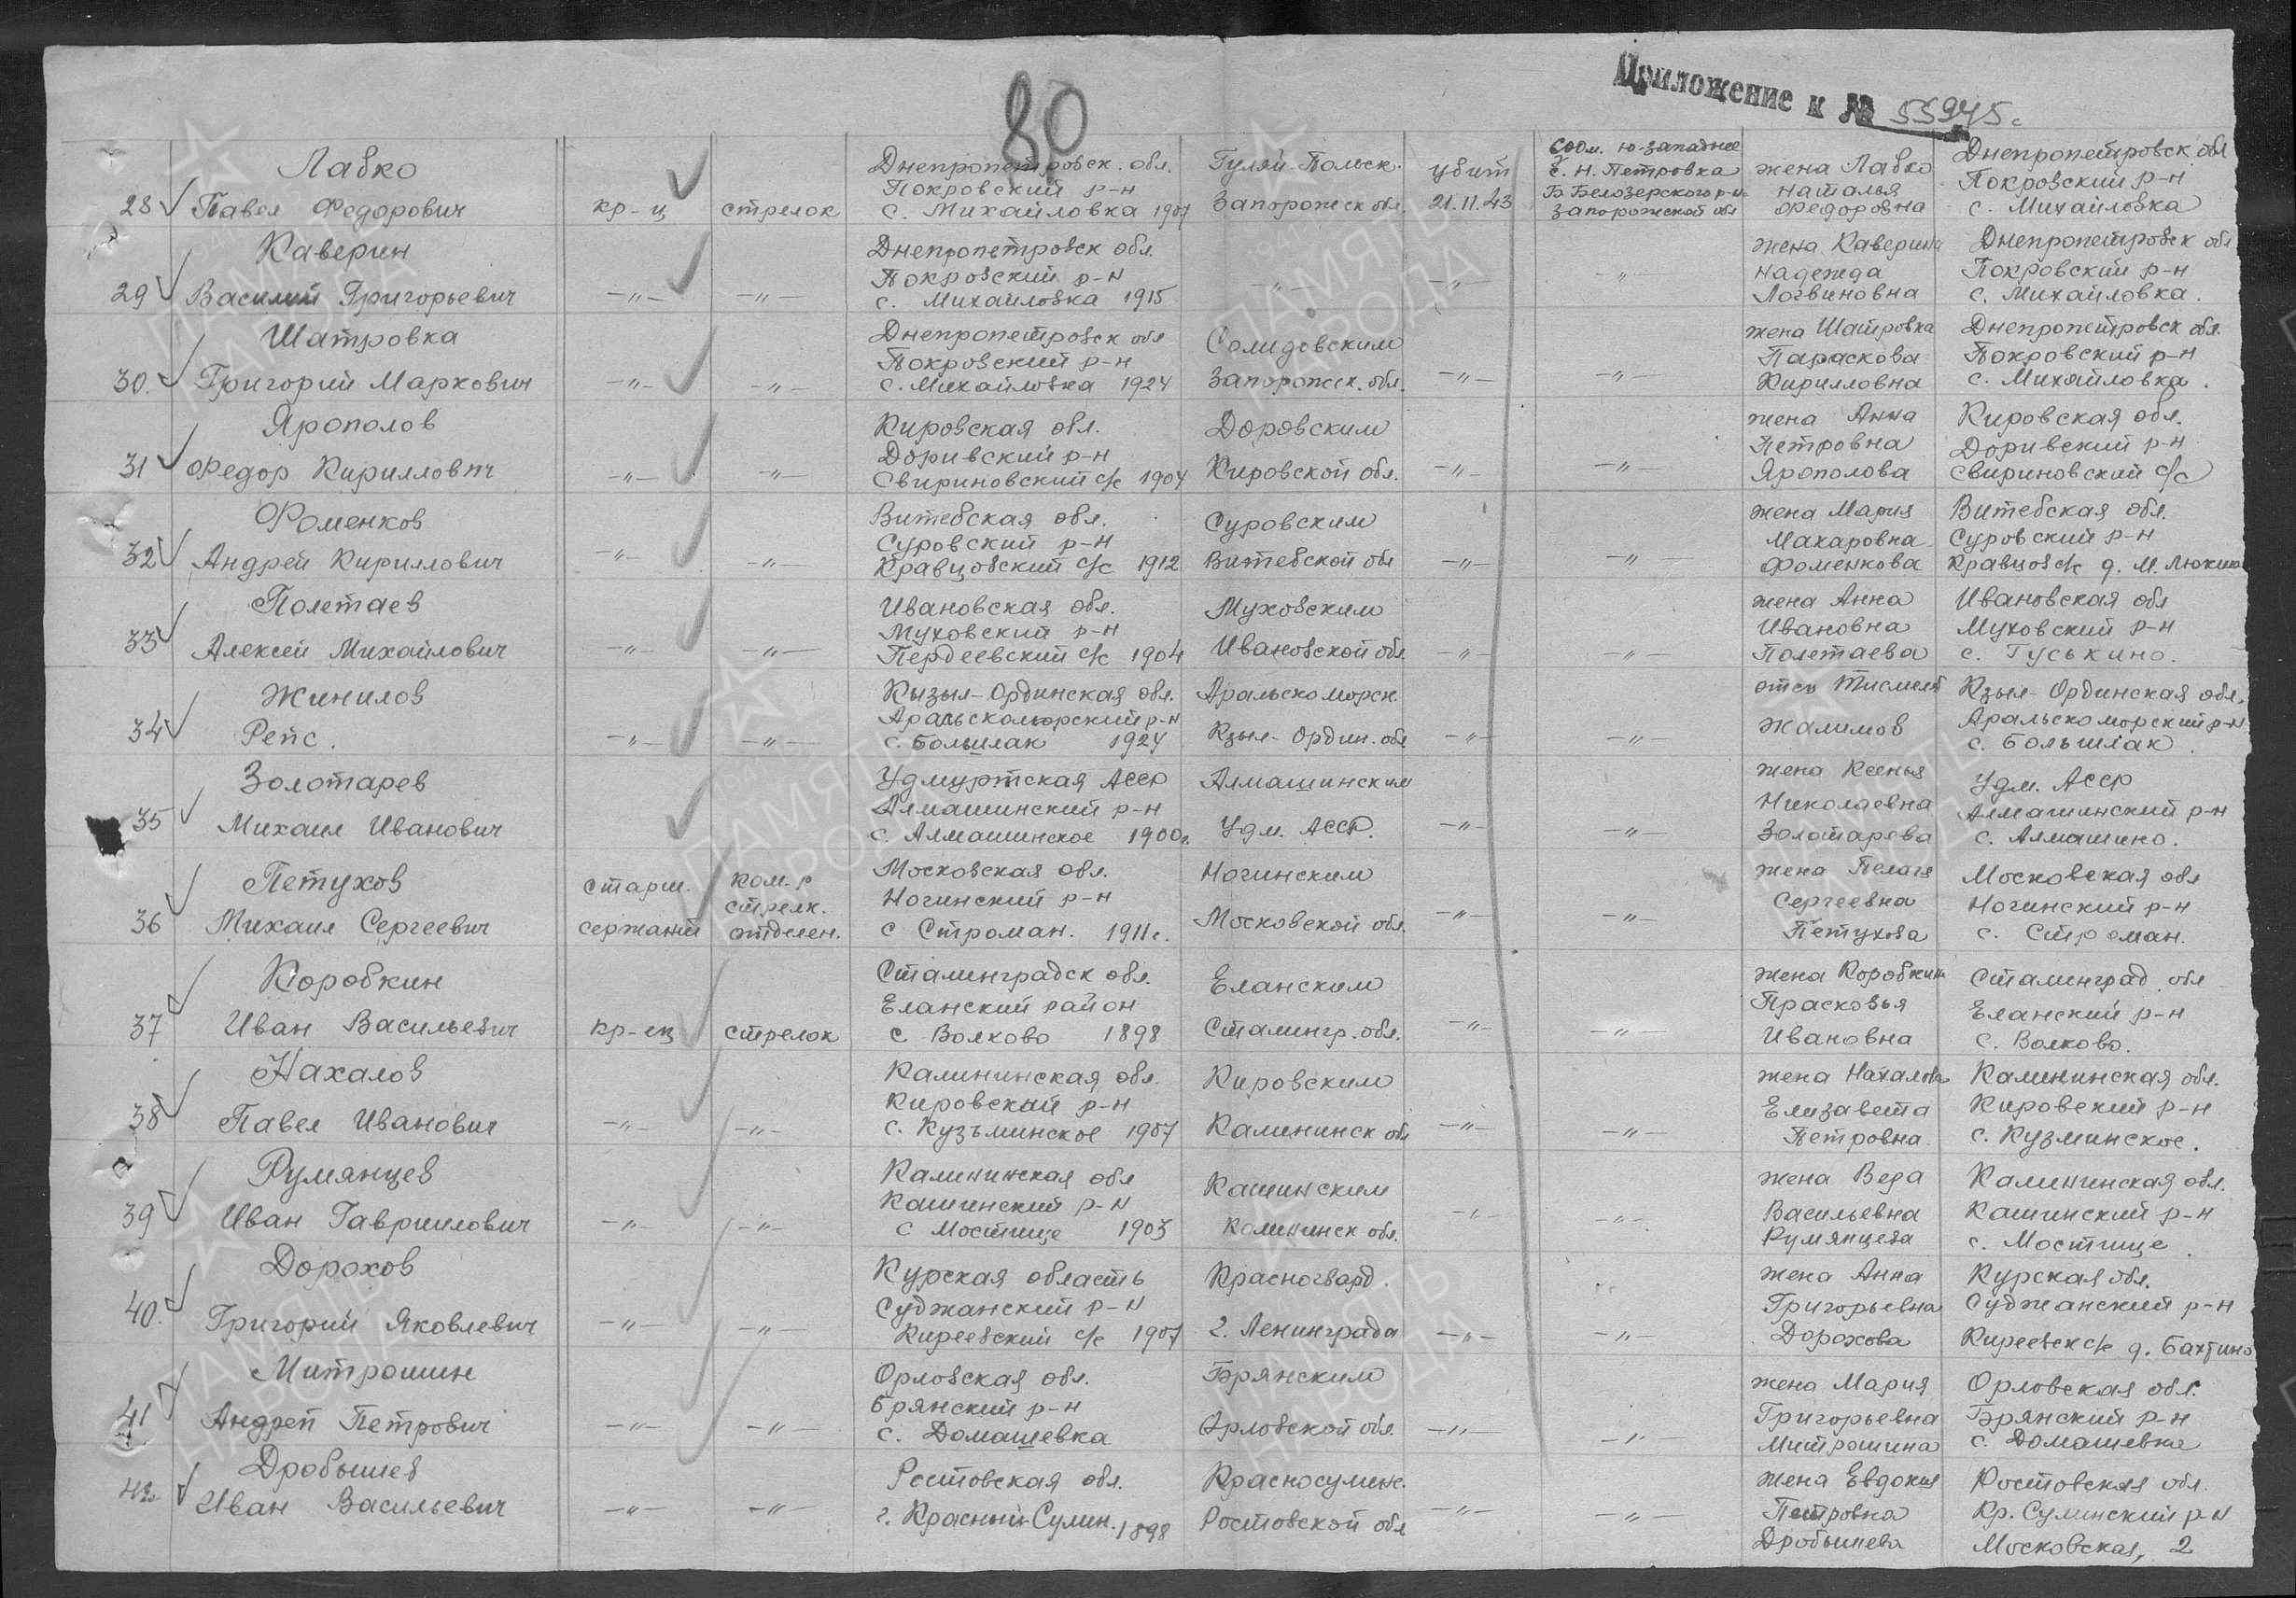 80
Приложение к № 55945с
28 Лавко Павел Федорович кр-ц стрелок Днепропетровск. обл. Покровский р-н с. Михайловка 1907 Гуляй-Польск. Запорожск обл. убит 21.11.43 500м. ю-западнее с. Н. Петровка Б Белозерского р-н Запорожской обл жена Лавко Наталья Федоровна Днепропетровск. обл Покровский р-н с. Михайловка
29 Каверин Василий Григорьевич —"— —"— Днепропетровск обл. Покровский р-н с. Михайловка 1915 —"— —"— —"— жена Каверина Надежда Логвиновна Днепропетровск обл Покровский р-н с. Михайловка.
30. Шатровка Григорий Маркович —"— —"— Днепропетровск обл Покровский р-н с. Михайловка 1924 Солидовским Запорожск. обл. —"— —"— жена Шатровка Параскова Кирилловна Днепропетровск обл. Покровский р-н с. Михайловка.
31 Ярополов Федор Кириллович —"— —"— Кировская обл. Доривский р-н Свириновский с/с 1904 Доровским Кировской обл. —"— —"— жена Анна Петровна Ярополова Кировская обл. Доривский р-н Свириновский с/с
32 Фоменков Андрей Кириллович —"— —"— Витебская обл. Суровский р-н Кравцовский с/с 1912 Суровским Витебской обл —"— —"— жена Мария Макаровна Фоменкова Витебская обл. Суровский р-н Кравцовс/с д. М.
33 Полетаев Алексей Михайлович —"— —"— Ивановская обл. Муховский р-н Пердеевский с/с 1904 Муховским Ивановской обл. —"— —"— жена Анна Ивановна Полетаева Ивановская обл Муховский р-н с. Гуськино.
34 Жинилов Репс. —"— —"— Кызыл-Ординская обл. Аральскоморский р-н с. Большлак 1924 Аральскоморск. Кзыл-Ордин. обл —"— —"— отец Жалимов Кзыл-Ординская обл. Аральскоморский р-н с. Большлак.
35 Золотарев Михаил Иванович Удмуртская АССР Алмашинский р-н с. Алмашинское 1900г. Алмашинским Удм. АССР. —"— —"— жена Ксенья Николаевна Золотарева Удм. АССР Алмашинский р-н с. Алмашино.
36 Петухов Михаил Сергеевич старш. сержант ком-р стрелк. отделен. Московская обл. Ногинский р-н с Строман. 1911г. Ногинским Московской обл. —"— —"— жена Пелагя Сергеевна Петухова Московская обл Ногинский р-н с. Строман.
37 Коробкин Иван Васильевич кр-ец стрелок Сталинградск обл. Еланский район с Волково 1898 Еланским Сталингр. обл. —"— —"— жена Коробкина Прасковья Ивановна Сталинград. обл Еланский р-н с. Волково.
38 Нахалов Павел Иванович —"— —"— Калининская обл. Кировский р-н с. Кузьминское 1907 Кировским Калининск обл —"— —"— жена Нахалова Елизавета Петровна Калининская обл. Кировский р-н с. Кузминское.
39 Румянцев Иван Гавриилович —"— —"— Калининская обл Кашинский р-н с Мостище 1903 Кашинским Калининск обл. —"— —"— жена Вера Васильевна Румянцева Калининская обл. Кашинский р-н с. Мостище.
40. Дорохов Григорий Яковлевич —"— —"— Курская область Суджанский р-н Киреевский с/с 1907 Красногвард. г. Ленинграда —"— —"— жена Анна Григорьевна Дорохова Курская обл. Суджанский р-н Киреевск с/с д. Бахтино
41 Митрошин Андрей Петрович —"— —"— Орловская обл. Брянский р-н с. Домашевка Брянским Орловской обл. —"— —"— жена Мария Григорьевна Митрошина Орловская обл. Брянский р-н с. Домашевка
42 Дробышев Иван Васильевич —"— —"— Ростовская обл. г. Красный Сулин. 1898 Красносулинс. Ростовской обл —"— —"— жена Евдокия Петровна Дробышева Ростовская обл. Кр. Сулинский р-н Московская, 2
ПАМЯТЬ НАРОДА